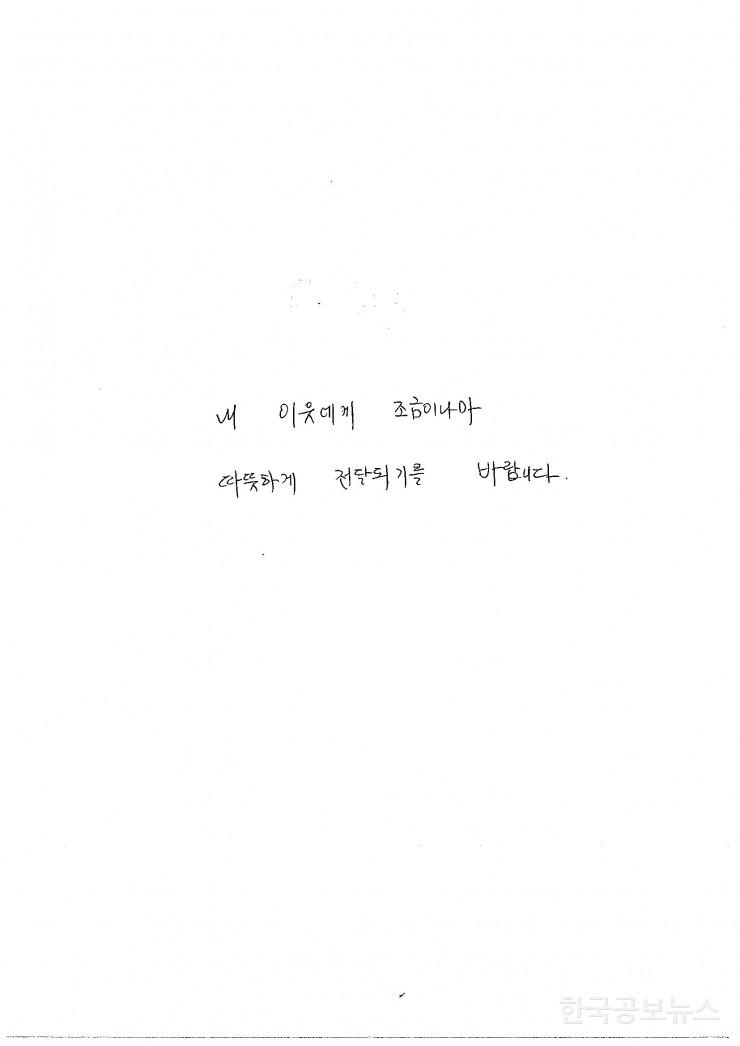 내 이웃에게 조금이나마
따뜻하게 전달되기를 바랍니다.
한국공보뉴스